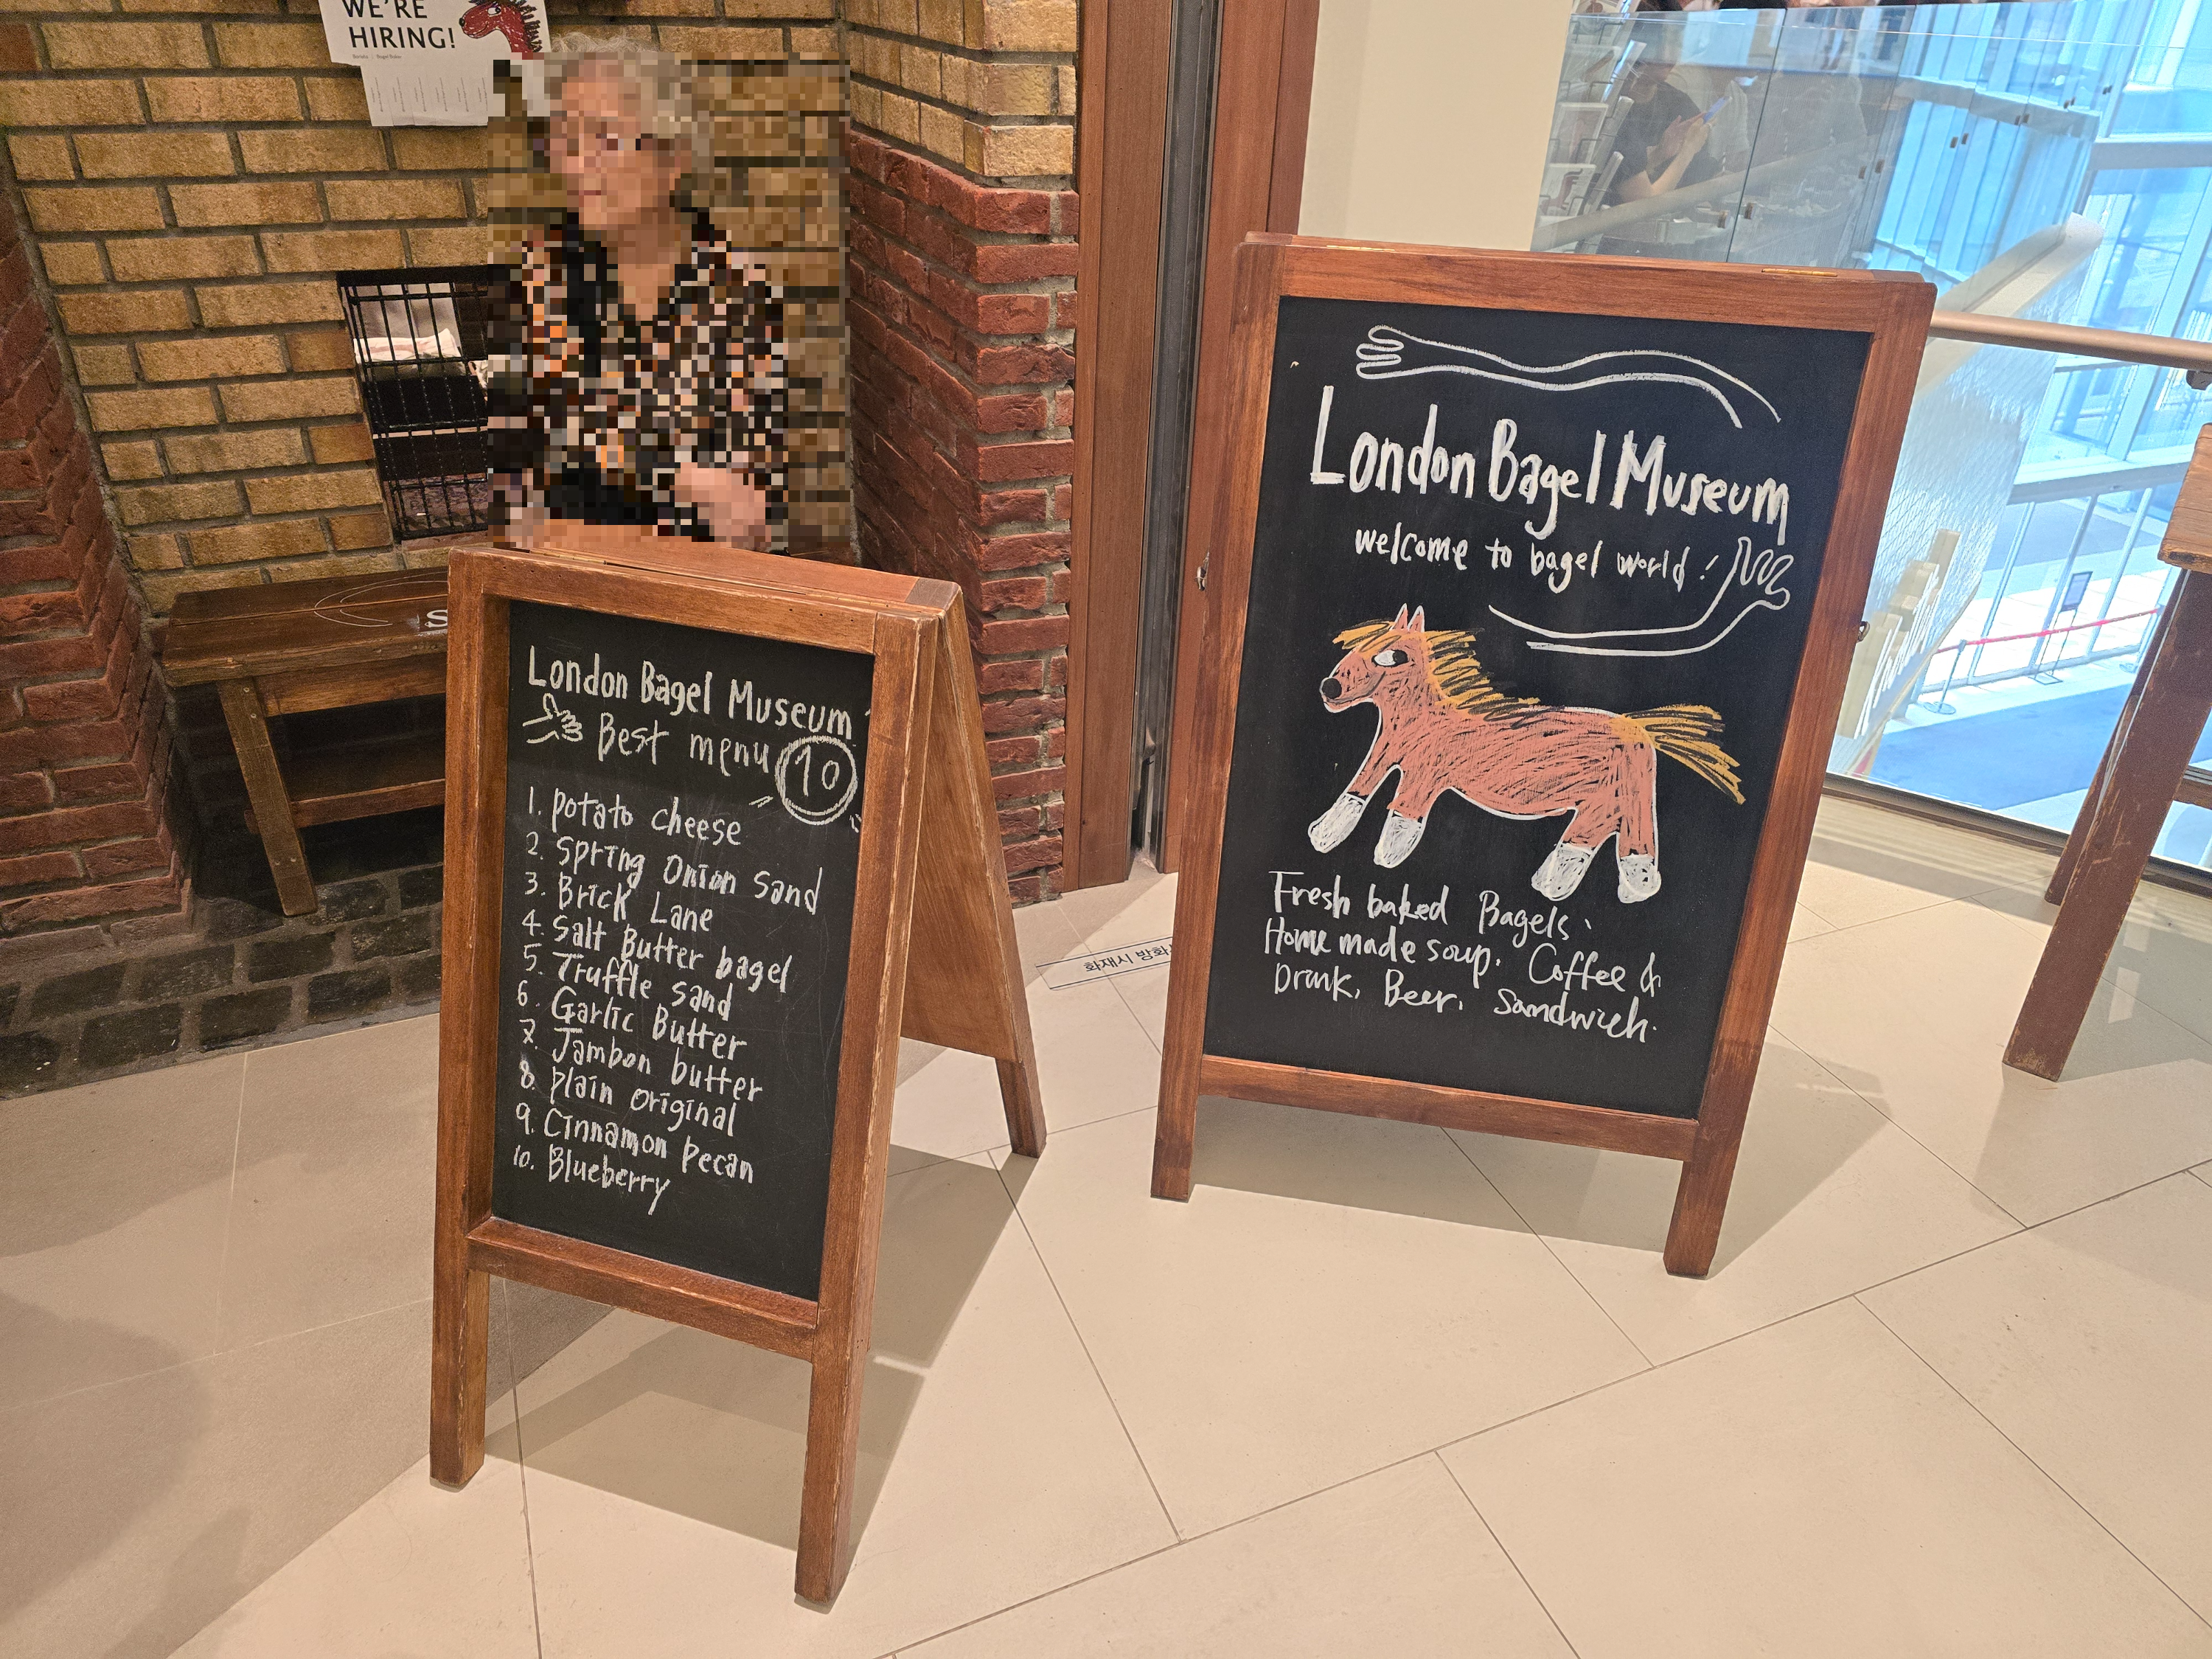 WE'RE
HIRING!
London Bagel Museum
Best menu 10
1. potato cheese
2. Spring Onion Sand
3. Brick Lane
4. Salt Butter bagel
5. Truffle sand
6. Garlic Butter
7. Jambon butter
8. plain original
9. Cinnamon pecan
10. Blueberry
London Bagel Museum
welcome to bagel world!
Fresh baked Bagels.
Home made soup. Coffee &
Drink, Beer, Sandwich.
화재시 방화